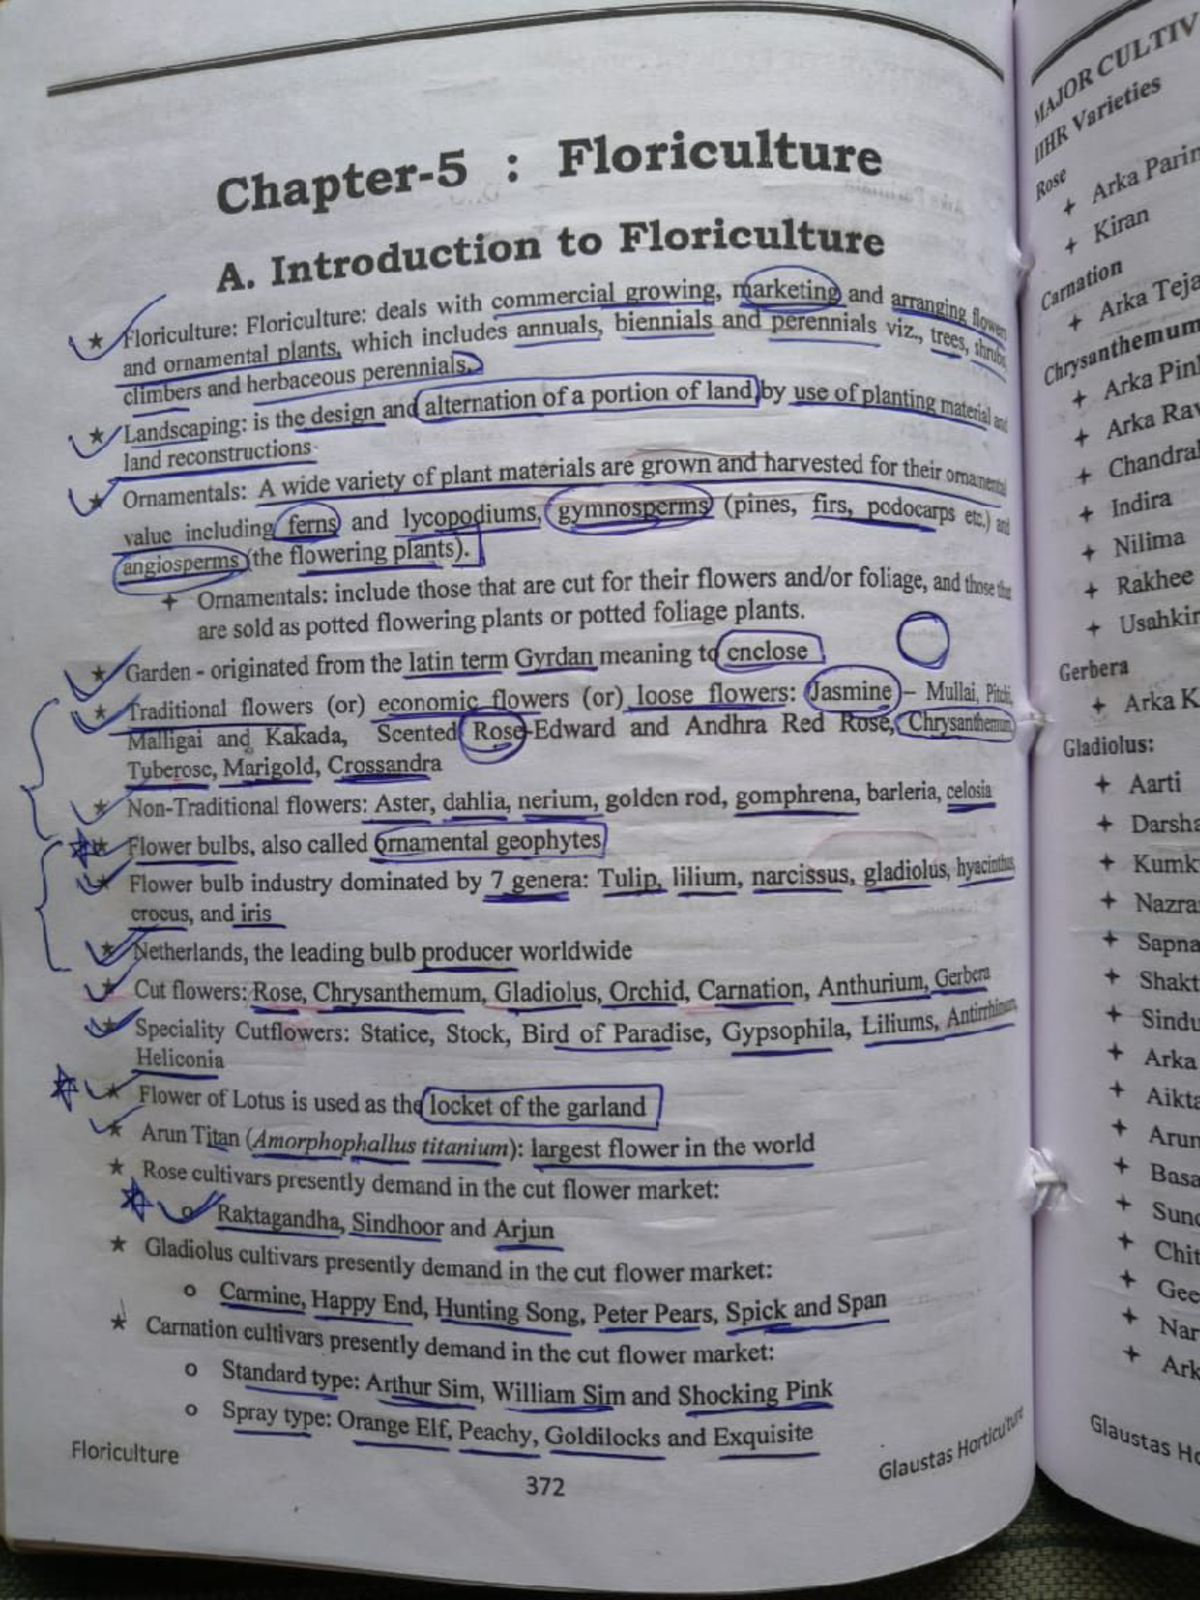 Chapter-5 : Floriculture
A. Introduction to Floriculture
★ Floriculture: Floriculture: deals with commercial growing, marketing and arranging flowers
and ornamental plants, which includes annuals, biennials and perennials viz., trees, shrubs,
climbers and herbaceous perennials.
★ Landscaping: is the design and alternation of a portion of land by use of planting material and
land reconstructions
★ Ornamentals: A wide variety of plant materials are grown and harvested for their ornamental
value including ferns and lycopodiums, gymnosperms (pines, firs, podocarps etc.) and
angiosperms (the flowering plants).
+ Ornamentals: include those that are cut for their flowers and/or foliage, and those that
are sold as potted flowering plants or potted foliage plants.
★ Garden - originated from the latin term Gyrdan meaning to enclose
★ Traditional flowers (or) economic flowers (or) loose flowers: Jasmine – Mullai, Pitchi,
Malligai and Kakada, Scented Rose-Edward and Andhra Red Rose, Chrysanthemum
Tuberose, Marigold, Crossandra
★ Non-Traditional flowers: Aster, dahlia, nerium, golden rod, gomphrena, barleria, celosia
★ Flower bulbs, also called ornamental geophytes
★ Flower bulb industry dominated by 7 genera: Tulip, lilium, narcissus, gladiolus, hyacinthus,
crocus, and iris
★ Netherlands, the leading bulb producer worldwide
★ Cut flowers: Rose, Chrysanthemum, Gladiolus, Orchid, Carnation, Anthurium, Gerbera
★ Speciality Cutflowers: Statice, Stock, Bird of Paradise, Gypsophila, Liliums, Antirrhinum,
Heliconia
★ Flower of Lotus is used as the locket of the garland
★ Arun Titan (Amorphophallus titanium): largest flower in the world
★ Rose cultivars presently demand in the cut flower market:
o Raktagandha, Sindhoor and Arjun
★ Gladiolus cultivars presently demand in the cut flower market:
o Carmine, Happy End, Hunting Song, Peter Pears, Spick and Span
★ Carnation cultivars presently demand in the cut flower market:
o Standard type: Arthur Sim, William Sim and Shocking Pink
o Spray type: Orange Elf, Peachy, Goldilocks and Exquisite
Floriculture
372
Glaustas Horticulture
MAJOR CULTIV
IIHR Varieties
Rose
+ Arka Parin
+ Kiran
Carnation
+ Arka Teja
Chrysanthemum
+ Arka Pink
+ Arka Rav
+ Chandra
+ Indira
+ Nilima
+ Rakhee
+ Usahkir
Gerbera
+ Arka K
Gladiolus:
+ Aarti
+ Darsha
+ Kumk
+ Nazra
+ Sapna
+ Shakt
+ Sindu
+ Arka
+ Aikta
+ Arun
+ Basa
+ Sund
+ Chit
+ Gee
+ Nar
+ Ark
Glaustas Ho